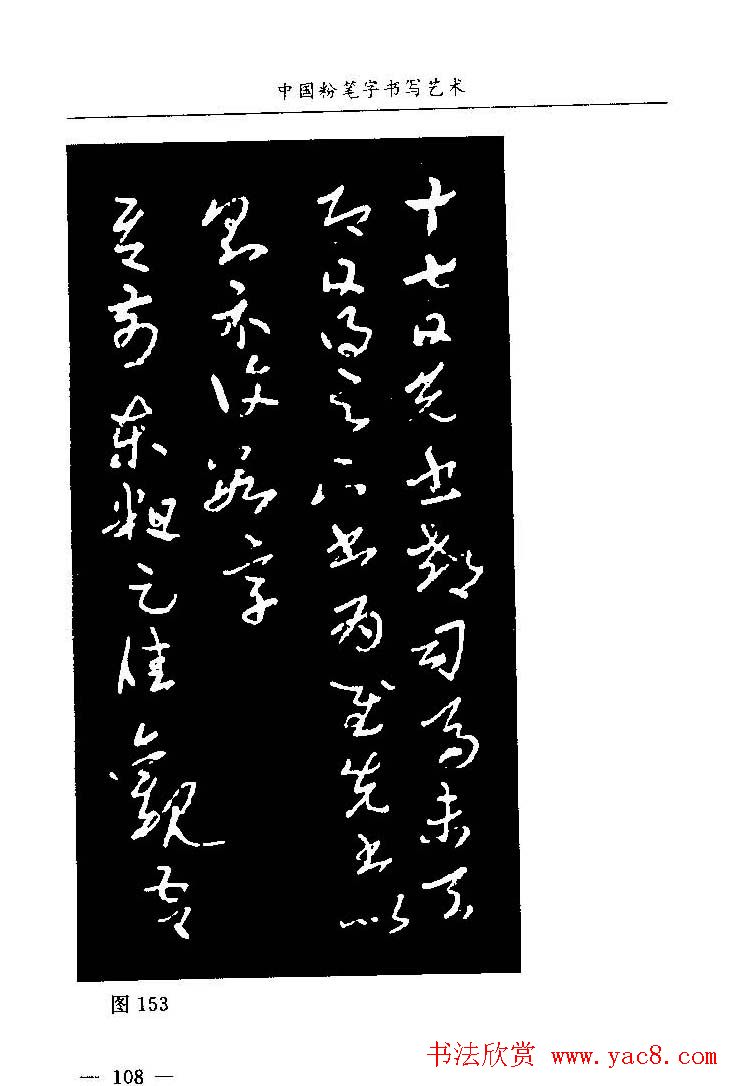 中国粉笔字书写艺术
十七日先書郗司馬未去
即日得足下書為慰先書以
具示復數字
吾前東粗足佳觀吾
图 153
— 108 —
书法欣赏 www.yac8.com